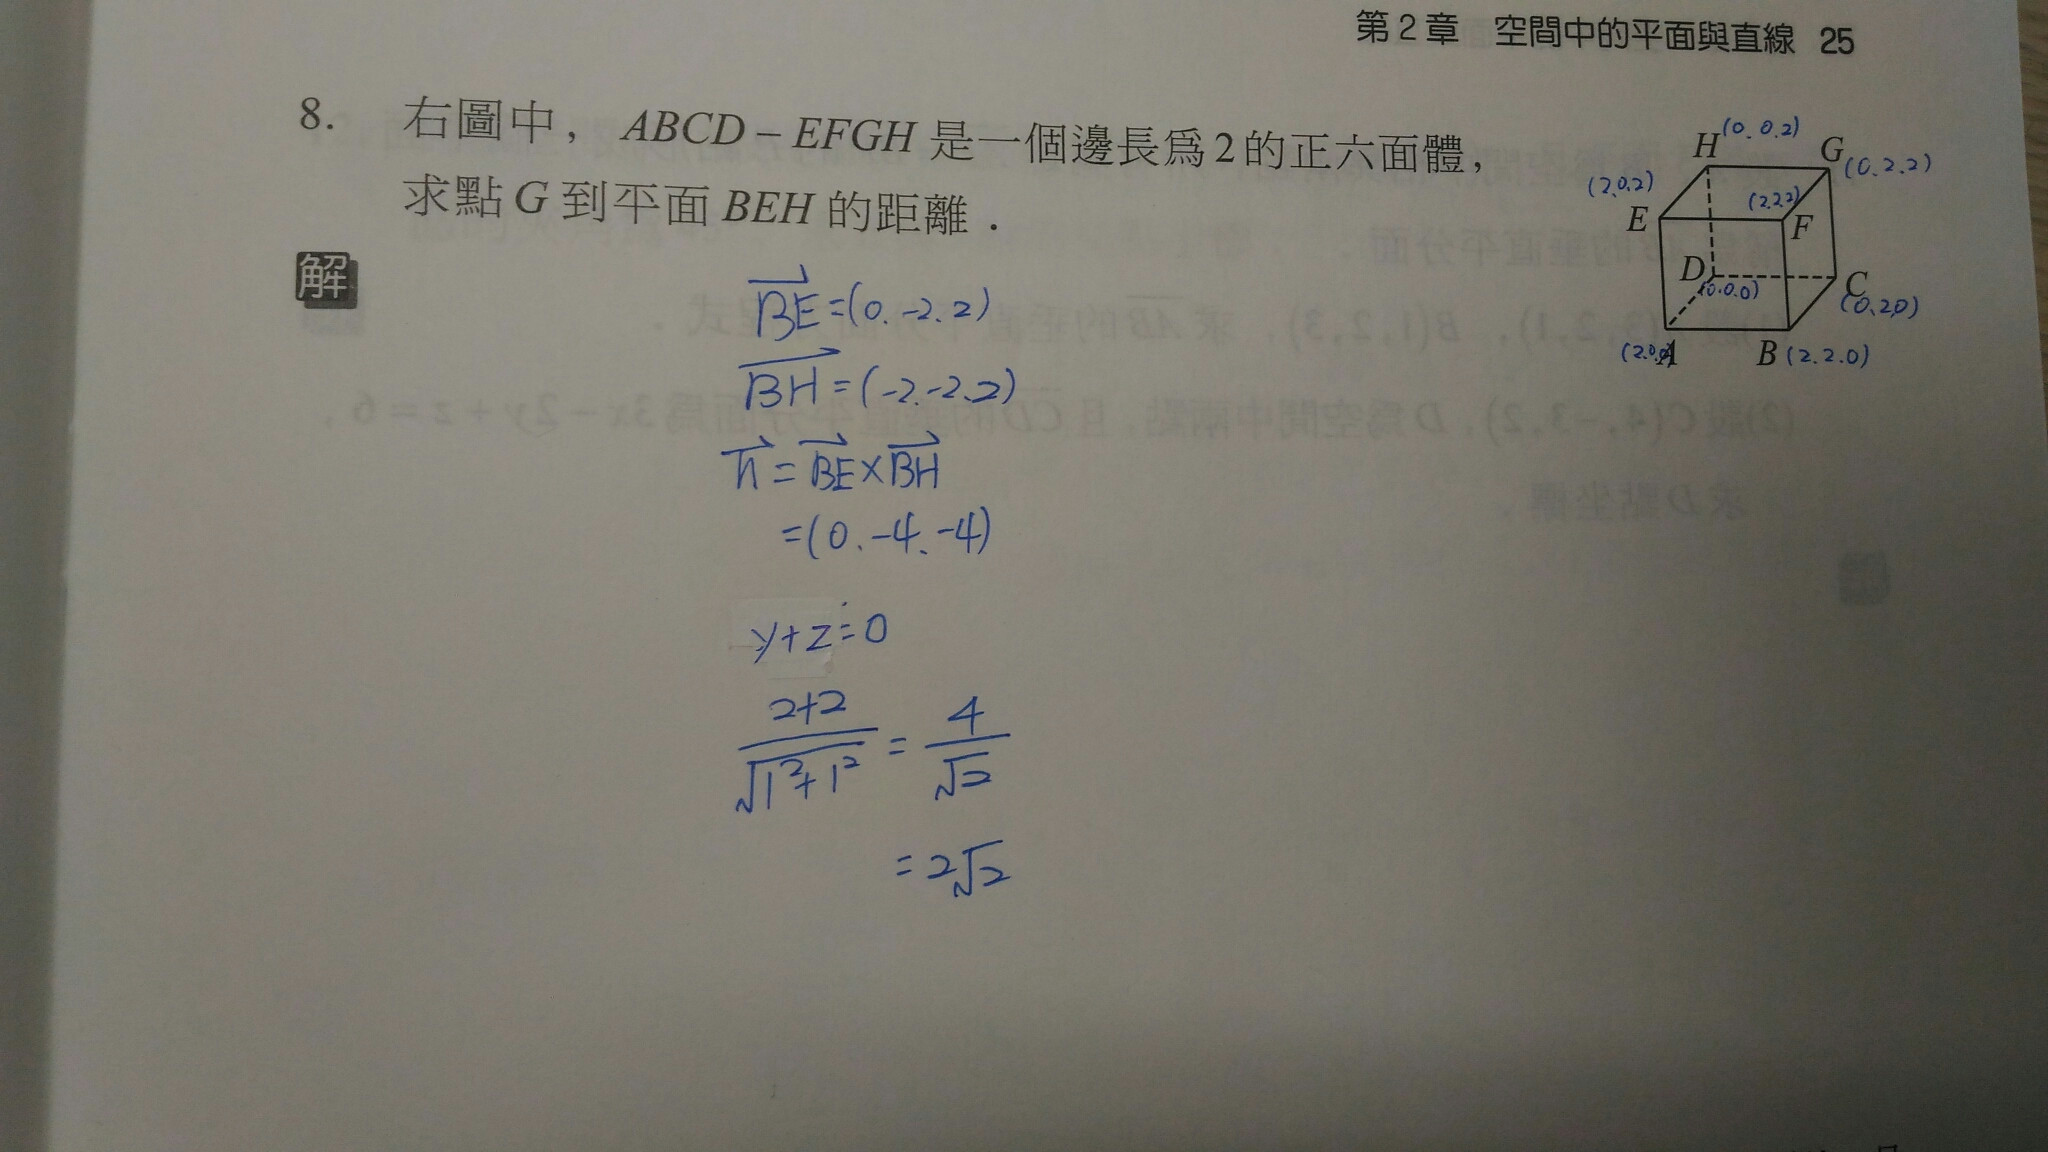 第2章 空間中的平面與直線 25
8. 右圖中，ABCD－EFGH 是一個邊長為2的正六面體，
求點 G 到平面 BEH 的距離．
H (0.0.2)
G (0.2.2)
(2.0.2)
E
(2.2.2)
F
D (0.0.0)
C (0.2.0)
(2.0.0) A
B (2.2.0)
解
BE⃗=(0.-2.2)
BH⃗=(-2.-2.2)
n⃗=BE⃗×BH⃗
=(0.-4.-4)
y+z=0
2+2/√1²+1² = 4/√2
=2√2